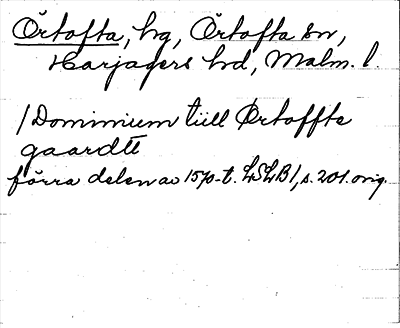 Örtofta, hg, Örtofta sn,
Harjagers hd, Malm. l.
/Dominium tiill Ørtoffte
gaardtt
förra delen av 1570-t. LSLB 1, s. 201. orig.